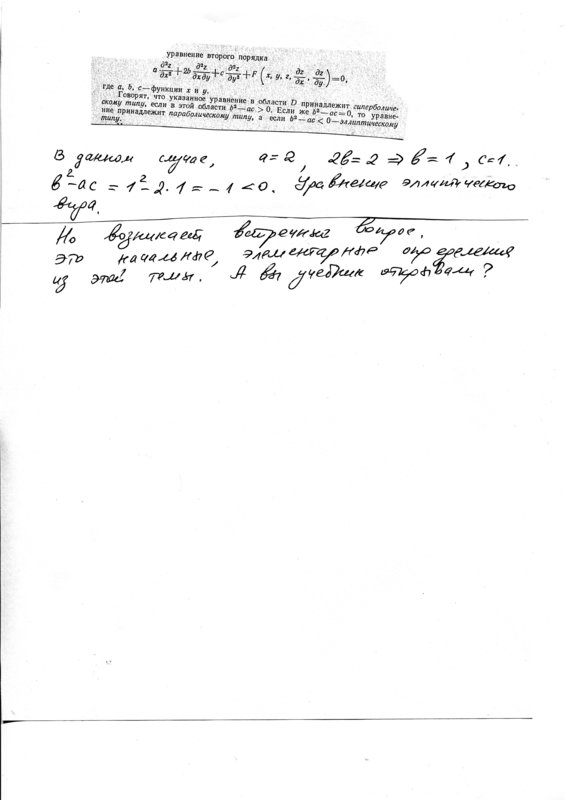 уравнение второго порядка
a ∂²z/∂x² + 2b ∂²z/∂x∂y + c ∂²z/∂y² + F (x, y, z, ∂z/∂x, ∂z/∂y) = 0,
где a, b, c — функции x и y.
Говорят, что указанное уравнение в области D принадлежит гиперболиче-
скому типу, если в этой области b² — ac > 0. Если же b² — ac = 0, то уравне-
ние принадлежит параболическому типу, а если b² — ac < 0 — эллиптическому
типу.
В данном случае, a = 2, 2b = 2 ⇒ b = 1, c = 1..
b² - ac = 1² - 2·1 = -1 < 0. Уравнение эллиптического
вида.
Но возникает встречный вопрос.
это начальные, элементарные определения
из этой темы. А вы учебник открывали?